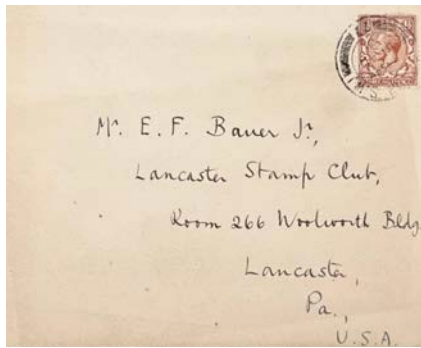 Mr. E. F. Bauer Jr.,
Lancaster Stamp Club,
Room 266 Woolworth Bldg
Lancaster,
Pa.,
U.S.A.